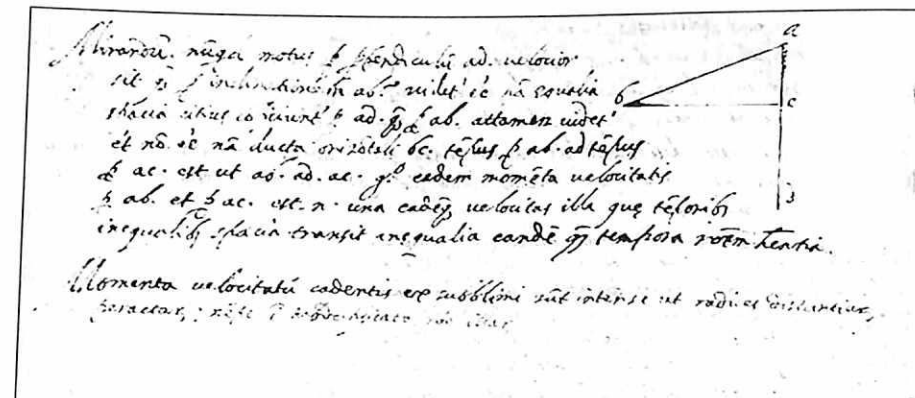 Mirandū. nūqd motus p̱ p̱pendiculū ad. velocior
sit q̄ p̱ inclinationē ab. videt' ēē nā equalia
spacia citius cōficiunt' p̱ ad. q̄ p̱ ab. attamen videt'
et nō ēē nā ducta orizōtali bc. tēpus p̱ ab. ad tēpus
p̱ ac. est ut ab. ad. ac. g° eadem momēta velocitatis
p̱ ab. et p̱ ac. est. n. una eadēq̄ velocitas illa quę tēporib;
inequalib; spacia transit inequalia eandē q̄ tempora rōem hēntia.
Momenta velocitatū cadentis ex sublimi sūt inter se ut radices distantiar,
peractar,
a
b
c